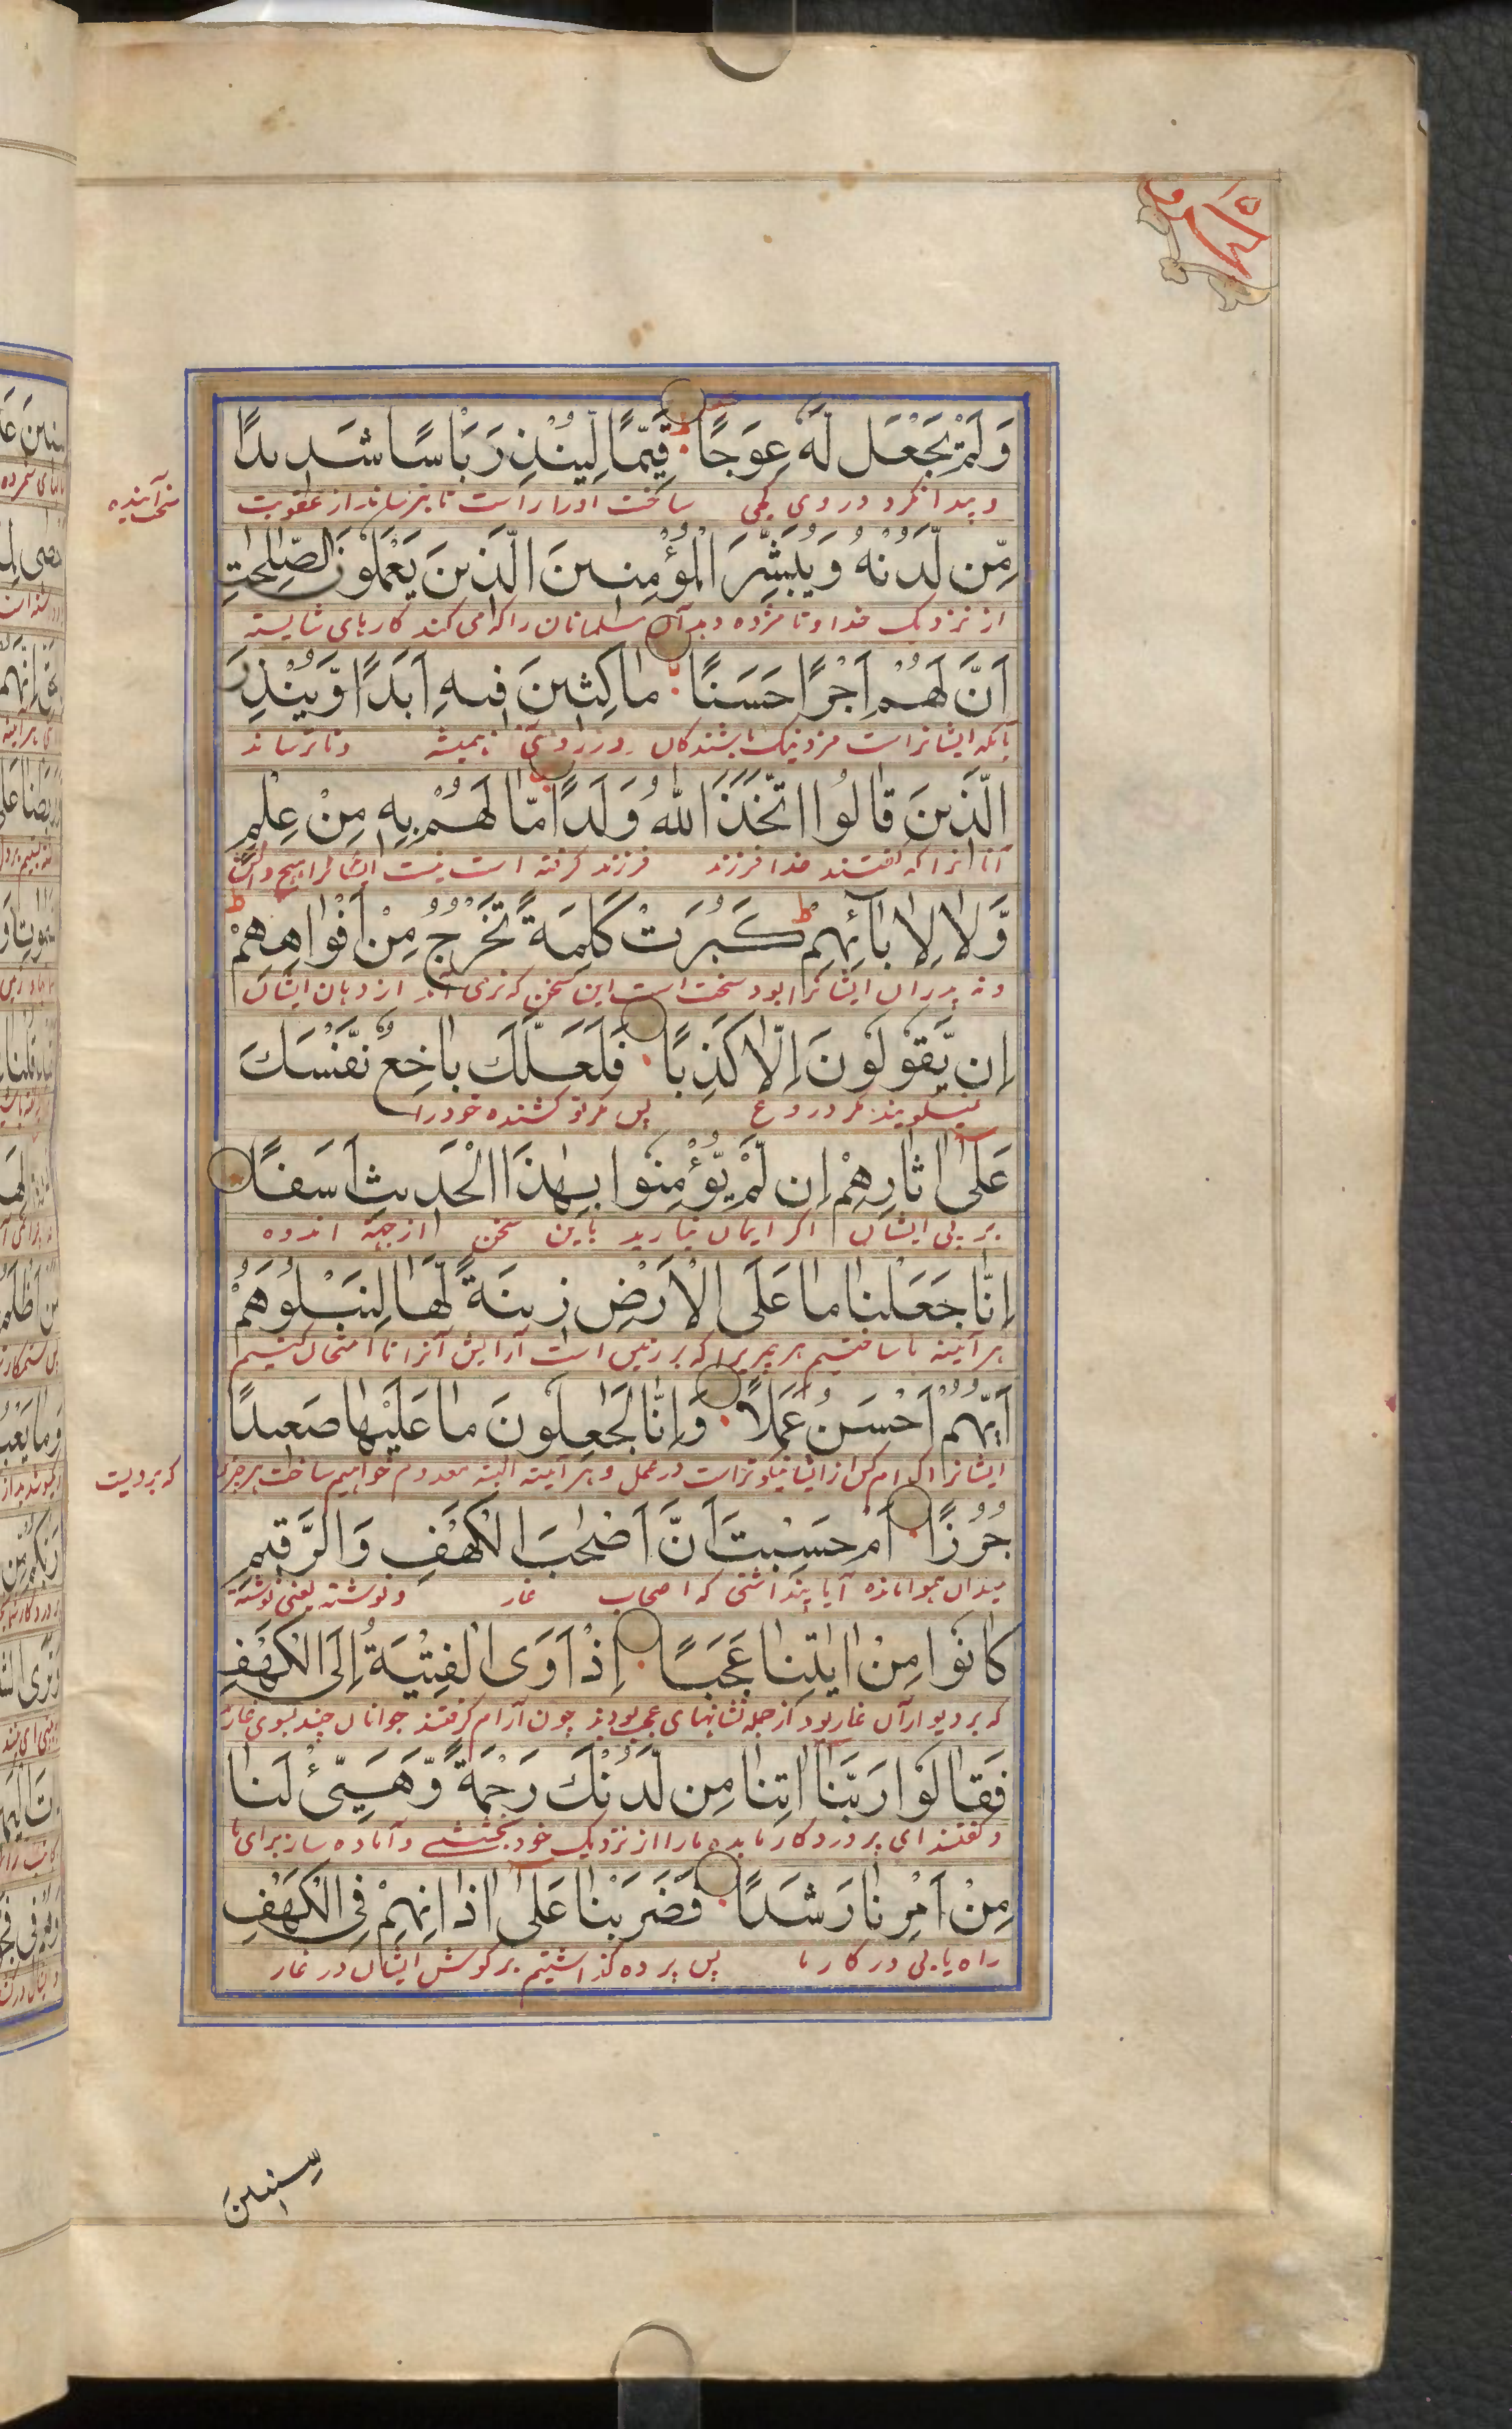 وَلَمْ يَجْعَل لَّهُ عِوَجًا قَيِّمًا لِّيُنْذِرَ بَاْسًا شَدِيدًا
و پیدا نکرد در وی کجی ساخت او را راست تا بترساند از عقوبت
سخت آینده
مِّن لَّدُنْهُ وَيُبَشِّرَ الْمُؤْمِنِينَ الَّذِينَ يَعْمَلُونَ الصّٰلِحٰتِ
از نزدیک خدا و تا مژده دهد آن مسلمانان را که می کنند کارهای شایسته
اَنَّ لَهُمْ اَجْرًا حَسَنًا مَاكِثِينَ فِيهِ اَبَدًا وَّيُنْذِرَ
بآنکه ایشانراست مزد نیک باشندگان در آن همیشه و تا ترساند
الَّذِينَ قَالُوا اتَّخَذَ اللّٰهُ وَلَدًا مَّا لَهُمْ بِهِ مِنْ عِلْمٍ
آنانرا که گفتند خدا فرزند فرزند گرفته است نیست ایشانرا هیچ دانش
وَّلَا لِاٰبَآئِهِمْ ط كَبُرَتْ كَلِمَةً تَخْرُجُ مِنْ اَفْوَاهِهِمْ ط
و نه پدران ایشانرا بود سخت است این سخن که برمی آید از دهان ایشان
اِن يَّقُولُونَ اِلَّا كَذِبًا فَلَعَلَّكَ بَاخِعٌ نَّفْسَكَ
نمیگویند مگر دروغ پس مگر تو کشنده خود را
عَلٰى اٰثَارِهِمْ اِن لَّمْ يُؤْمِنُوا بِهٰذَا الْحَدِيثِ اَسَفًا
بر پی ایشان اگر ایمان نیارید باین سخن از جهة اندوه
اِنَّا جَعَلْنَا مَا عَلَى الْاَرْضِ زِينَةً لَّهَا لِنَبْلُوَهُمْ
هر آئینه ما ساختیم هر چیزیرا که بر زمین است آرایش آنرا تا امتحان کنیم
اَيُّهُمْ اَحْسَنُ عَمَلًا وَاِنَّا لَجٰعِلُونَ مَا عَلَيْهَا صَعِيدًا
ایشانرا کدام کس از ایشان نیکوتر است در عمل و هر آئینه البته معدوم خواهیم ساخت هرچیز
که برویست
جُرُزًا اَمْ حَسِبْتَ اَنَّ اَصْحٰبَ الْكَهْفِ وَالرَّقِيمِ
میدان هموار ساده آیا پنداشتی که اصحاب غار و نوشته یعنی نوشته
كَانُوا مِنْ اٰيٰتِنَا عَجَبًا اِذْ اَوَى الْفِتْيَةُ اِلَى الْكَهْفِ
که بر دیوار آن غار بود از جمله نشانهای عجب بودند چون آرام گرفتند جوانان چند بسوی غار
فَقَالُوا رَبَّنَا اٰتِنَا مِن لَّدُنْكَ رَحْمَةً وَّهَيِّئْ لَنَا
و گفتند ای پروردگار ما بده ما را از نزدیک خود بخششے و آماده ساز برای ما
مِنْ اَمْرِنَا رَشَدًا فَضَرَبْنَا عَلٰى اٰذَانِهِمْ فِي الْكَهْفِ
راه یابی در کار ما پس پرده گذاشتیم بر گوش ایشان در غار
سِنِينَ